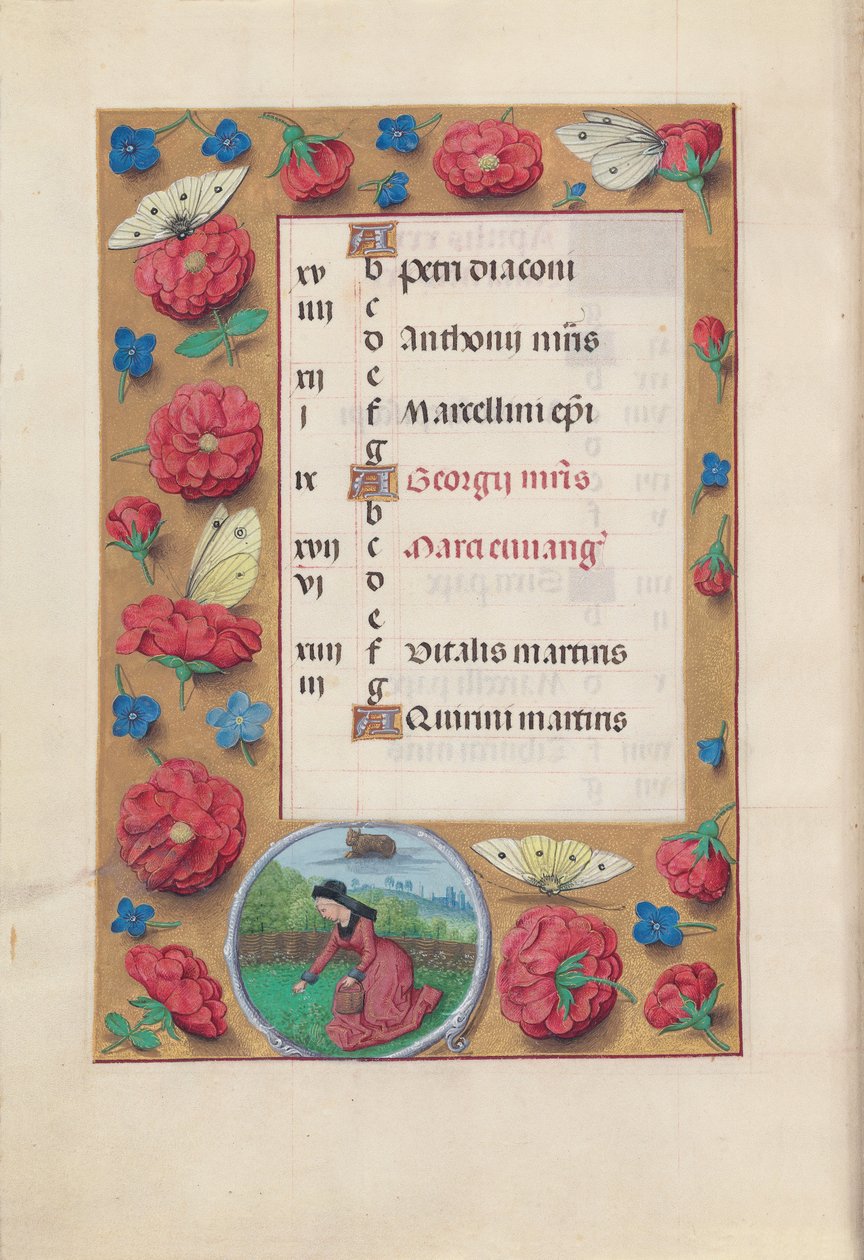 A
xv b Petri diaconi
iiij c
d Anthonij mr̃is
xij e
j f Marcellini ep̃i
g
ix A Georgij mr̃is
b
xvij c Marci euuang
vj d
e
xiiij f Vitalis martiris
iij g
A Quirini martiris